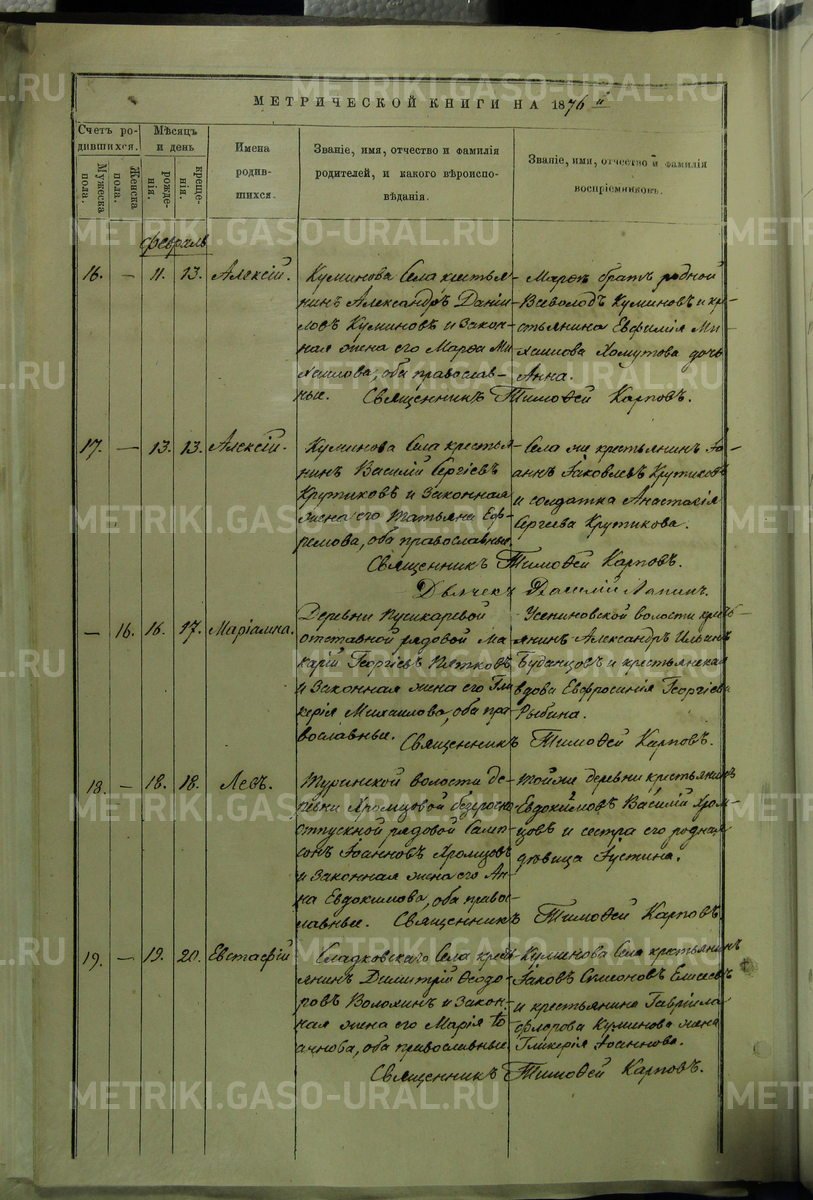 МЕТРИЧЕСКОЙ КНИГИ НА 1876 й
Счетъ ро-
дившихся.
Мужеска пола.
Женска пола.
Мѣсяцъ
и день
рожде-
нія.
креще-
нія.
Имена
родив-
шихся.
Званіе, имя, отчество и фамилія
родителей, и какого вѣроиспо-
вѣданія.
Званіе, имя, отчество и фамилія
воспріемниковъ.
Февраль
16. — 11. 13. Алексій.
Куминова Села крестья-
нинъ Александръ Даніи-
ловъ Куминовъ и Закон-
ная жена его Марѳа Ми-
хаилова, оба православ-
ные.
Марѳы братъ родной
Всеволодъ Куминовъ и кре-
стьянина Евфимія Ми-
хаилова Хомутова дочь
Анна.
Священникъ Тимоѳей Карповъ.
17. — 13. 13. Алексій.
Куминова Села крестья-
нинъ Василій Сергіевъ
Крутиковъ и Законная
жена его Татьяна Еф-
ремова, оба православные.
Села же крестьянин Іо-
аннъ Іаковлевъ Крутиковъ
и солдатка Анастасія
Сергіева Крутикова.
Священникъ Тимоѳей Карповъ.
Дьячекъ Василій Ляпин.
— 16. 16. 17. Маріамна.
Деревни Пушкаревой
отставной рядовой Ма-
карій Георгіевъ Пятковъ
и Законная жена его Гли-
керія Михаилова, оба пра-
вославные.
Усениновской волости крестья-
янинъ Александръ Ильинъ
Буданцовъ и крестьянская
вдова Евфросинія Георгіева
Рыбина.
Священникъ Тимоѳей Карповъ.
18. — 18. 18. Левъ.
Туринской волости де-
ревни Хромцовой безсрочно
отпускной рядовой Самп-
сонъ Іоанновъ Хромцовъ
и Законная жена его Ан-
на Евдокимова, оба право-
славные.
Той же деревни крестьянинъ
Евдокимовъ Василій Хром-
цовъ и сестра его родная
дѣвица Іустина.
Священникъ Тимоѳей Карповъ.
19. — 19. 20. Евстафій
Сладковскаго Села кресть-
янинъ Димитрій Ѳеодо-
ровъ Воложинъ и Закон-
ная жена его Марія Іо-
аннова, оба православные.
Куминова Села крестьянинъ
Іаковъ Симеоновъ Елисеевъ
и крестьянина Гавріила
Флорова Куминова жена
Гликерія Іоаннова.
Священникъ Тимоѳей Карповъ.
METRIKI.GASO-URAL.RU